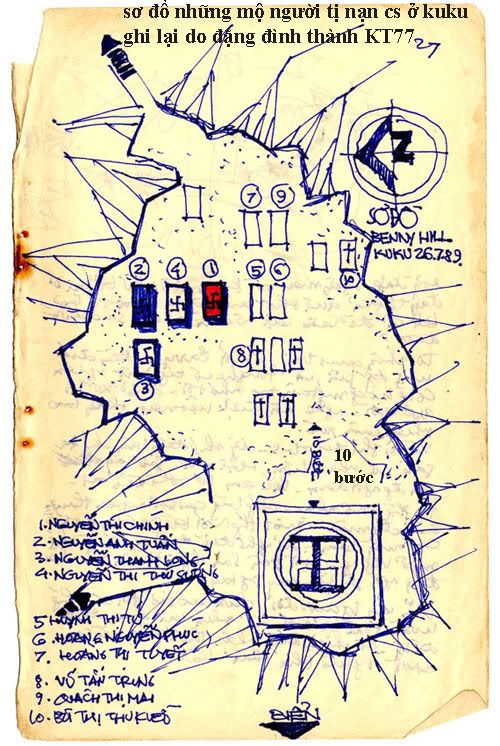 sơ đồ những mộ người tị nạn cs ở kuku
ghi lại do đặng đình thành KT77
27
N
SƠ ĐỒ
BENNY HILL
KUKU 26.7.89.
7
9
2
4
1
5
6
10
8
3
10
bước
1. NGUYỄN THỊ CHINH
2. NGUYỄN ANH TUẤN
3. NGUYỄN THANH LONG
4. NGUYỄN THỊ THU SƯƠNG
5 HUỲNH THỊ TƯ
6. HOÀNG NGUYỄN PHÚC
7. HOÀNG THỊ TUYẾT
8. VÕ TẤN TRUNG
9. QUÁCH THỊ MAI
10. THỊ THU
BIỂN